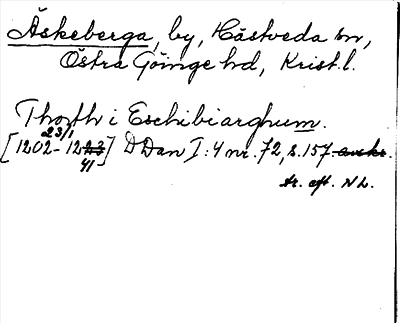 Äskeberga, by, Hästveda sn,
Östra Göinge hd, Krist. l.
Thorth i Eschibiarghum.
23/1
[1202-1223] DDan I:4 nr. 72, s. 157 avskr.
41
tr. eft. NL.